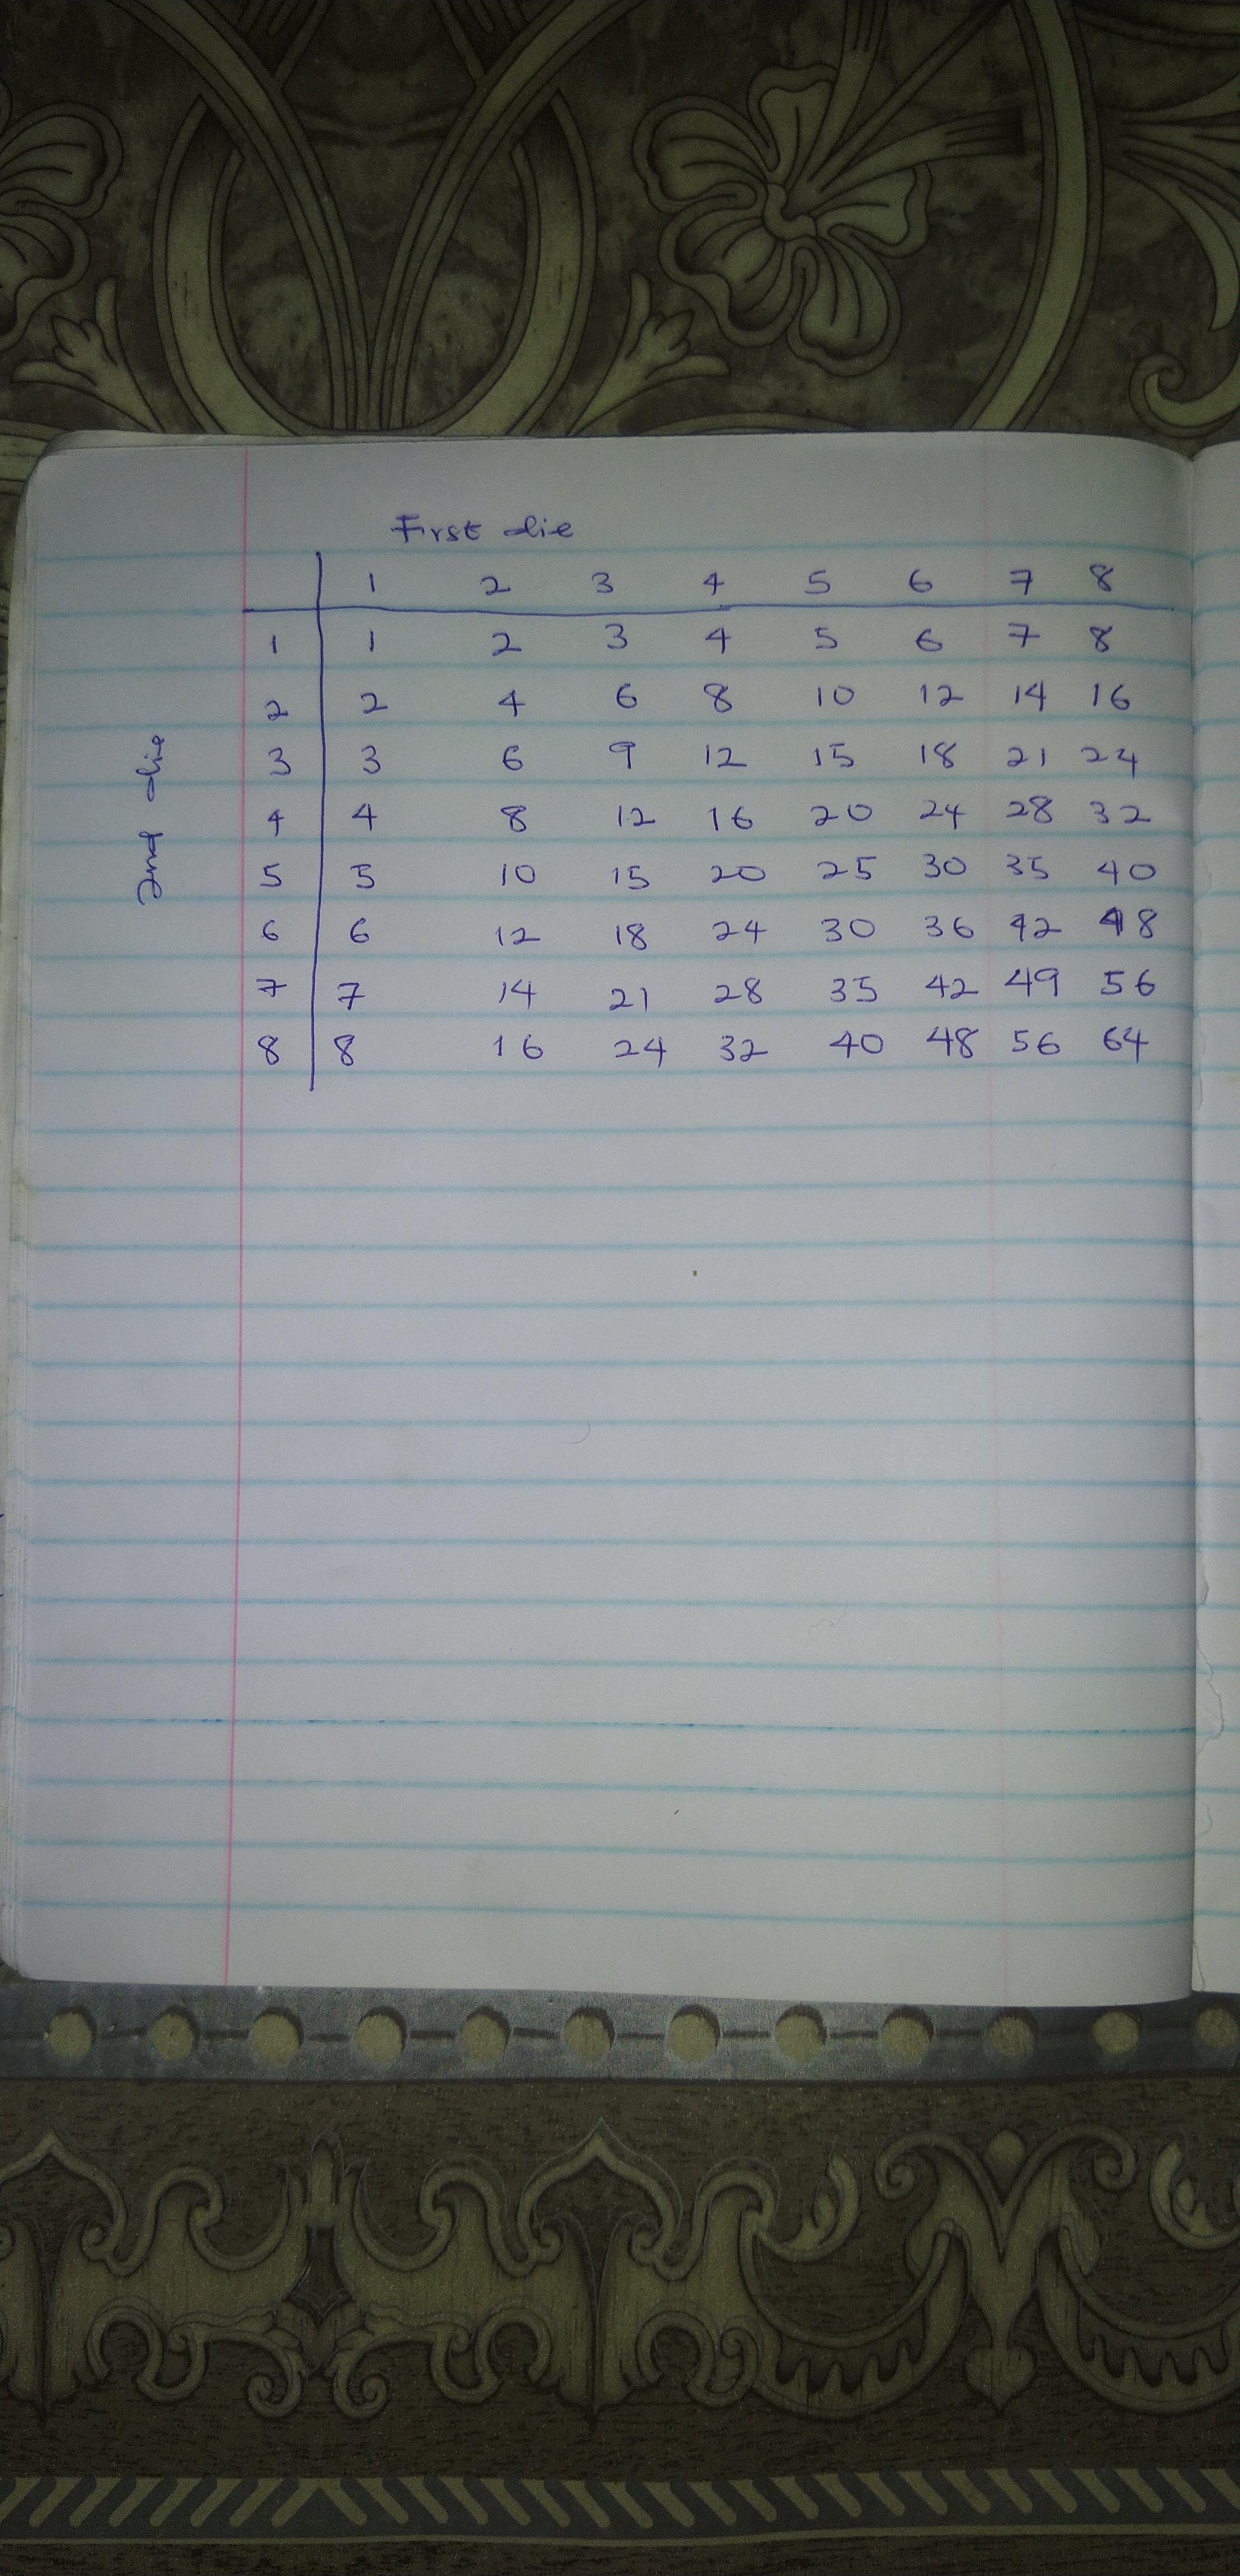 First die
1 2 3 4 5 6 7 8
1 1 2 3 4 5 6 7 8
2 2 4 6 8 10 12 14 16
3 3 6 9 12 15 18 21 24
4 4 8 12 16 20 24 28 32
5 5 10 15 20 25 30 35 40
6 6 12 18 24 30 36 42 48
7 7 14 21 28 35 42 49 56
8 8 16 24 32 40 48 56 64
2nd die